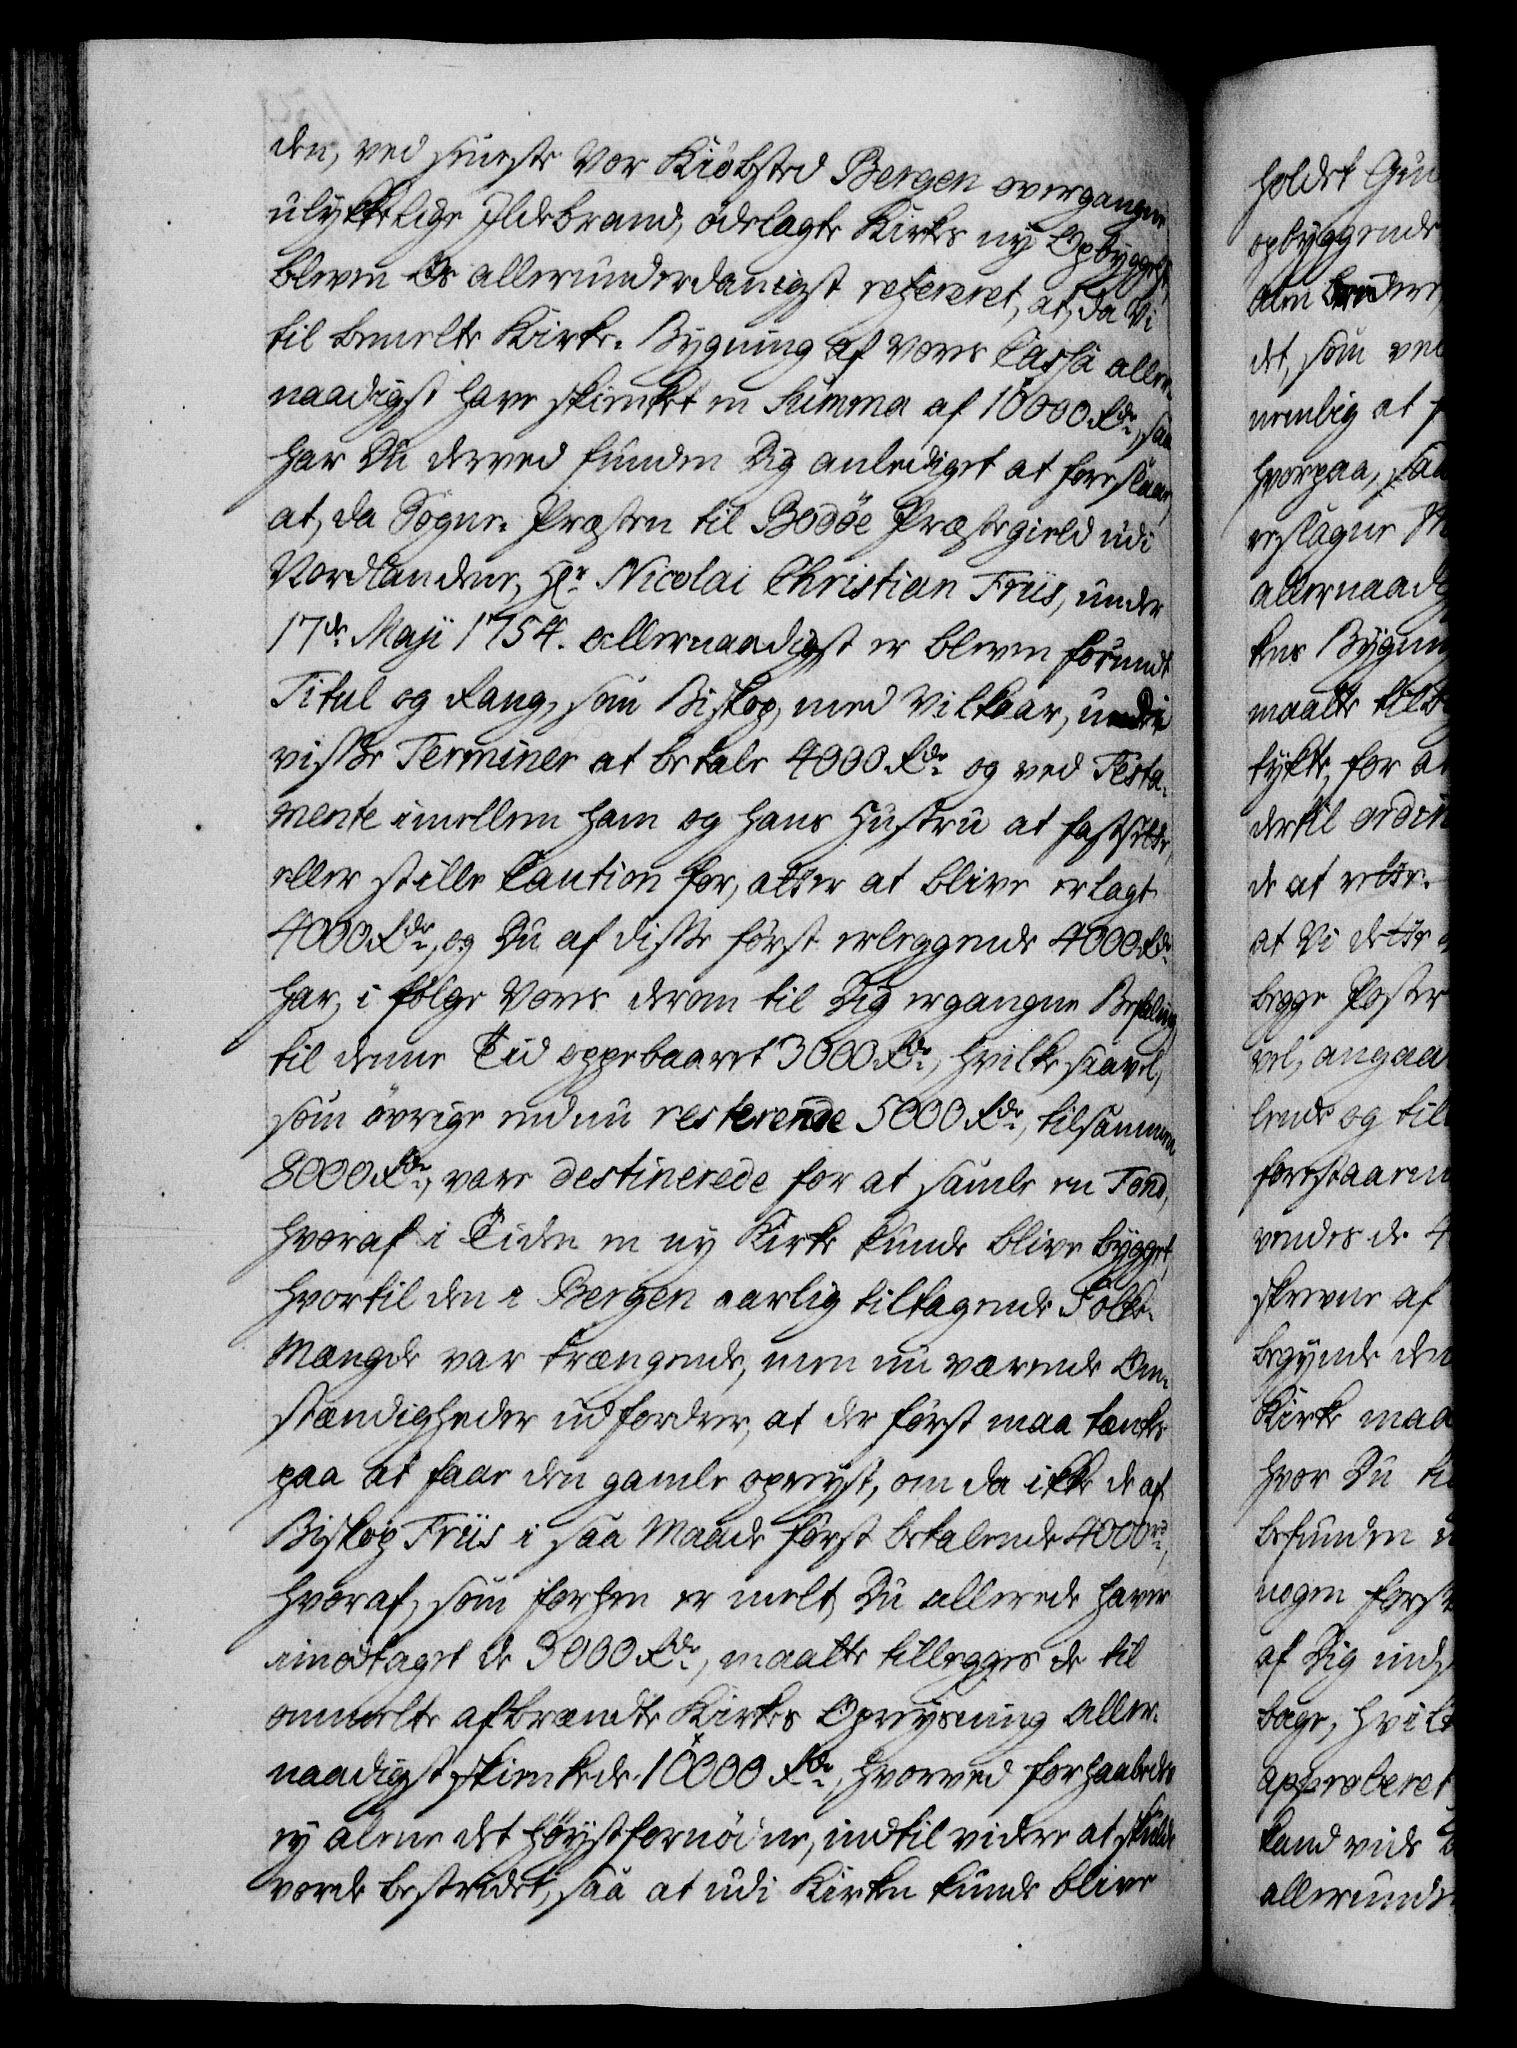 den, ved seneste Vor Kiöbsted Bergen overgangne
ulykkelige Ildebrand, ödelagte Kirkes ny Opbyggelse,
bleven Os allerunderdanigst refereret, at, da Vi
til bemelte Kirke-Bygning af Vores Cassa aller-
naadigst have skienket en Summa af 10000 Rdr, saa
har Du derved funden Dig anlediget at foreslaae,
at, da Sogne-Præsten til Bodöe Præstegield udi
Nordlandene, Hr Nicolai Christian Friis, under
17de Maji 1754. allernaadigst er bleven forundt
Titul og Rang, som Biskop, med Vilkaar, udi
visse Terminer at betale 4000 Rdr og ved Testa-
mente imellem ham og hans Hustru at fastsette,
eller stille Caution for, atter at blive erlagt
4000 Rdr, og Du af disse först erleggende 4000 Rdr
har, i fölge Vores derom til Dig ergangne Befaling,
til denne Tid oppebaaret 3000 Rdr, hvilke saavel,
som övrige endnu resterende 5000 Rdr, tilsammen
8000 Rdr, vare destinerede for at samle en Fond,
hvoraf i Tiden en ny Kirke kunde blive bygget,
hvortil den i Bergen aarlig tiltagende Folke-
Mængde var trængende, men nu værende Om-
stændigheder udfordrer, at der först maa tænkes
paa at faae den gamle opreyst, om da ikke de af
Biskop Friis i saa Maade först betalende 4000 rd,
hvoraf, som forhen er melt, Du allerede haver
imodtaget de 3000 Rdr, maatte tillegges de til
ommelte afbrændte Kirkes Opreysning aller-
naadigst skienkede 10000 Rdr, hvorved forhaabedes
ey alene det höystfornödne, indtil videre at skulde
vorde bestridet, saa at udi Kirken kunde blive
holdet Gud
opbyggende
det, som ved
nemlig at
hvorpaa, saa
allernaadig
kens Bygning
maatte
tykte, for at
dertil
de at
at Vi dette
begge Poster
vel, angaa
lende og til
forestaaen
vendes de 4
skrevne af
begynde den
Kirke maa
hvor Du
befunden
nogen forst
af Dig ind
bage, hvilk
approberet
kand vide
allerunder